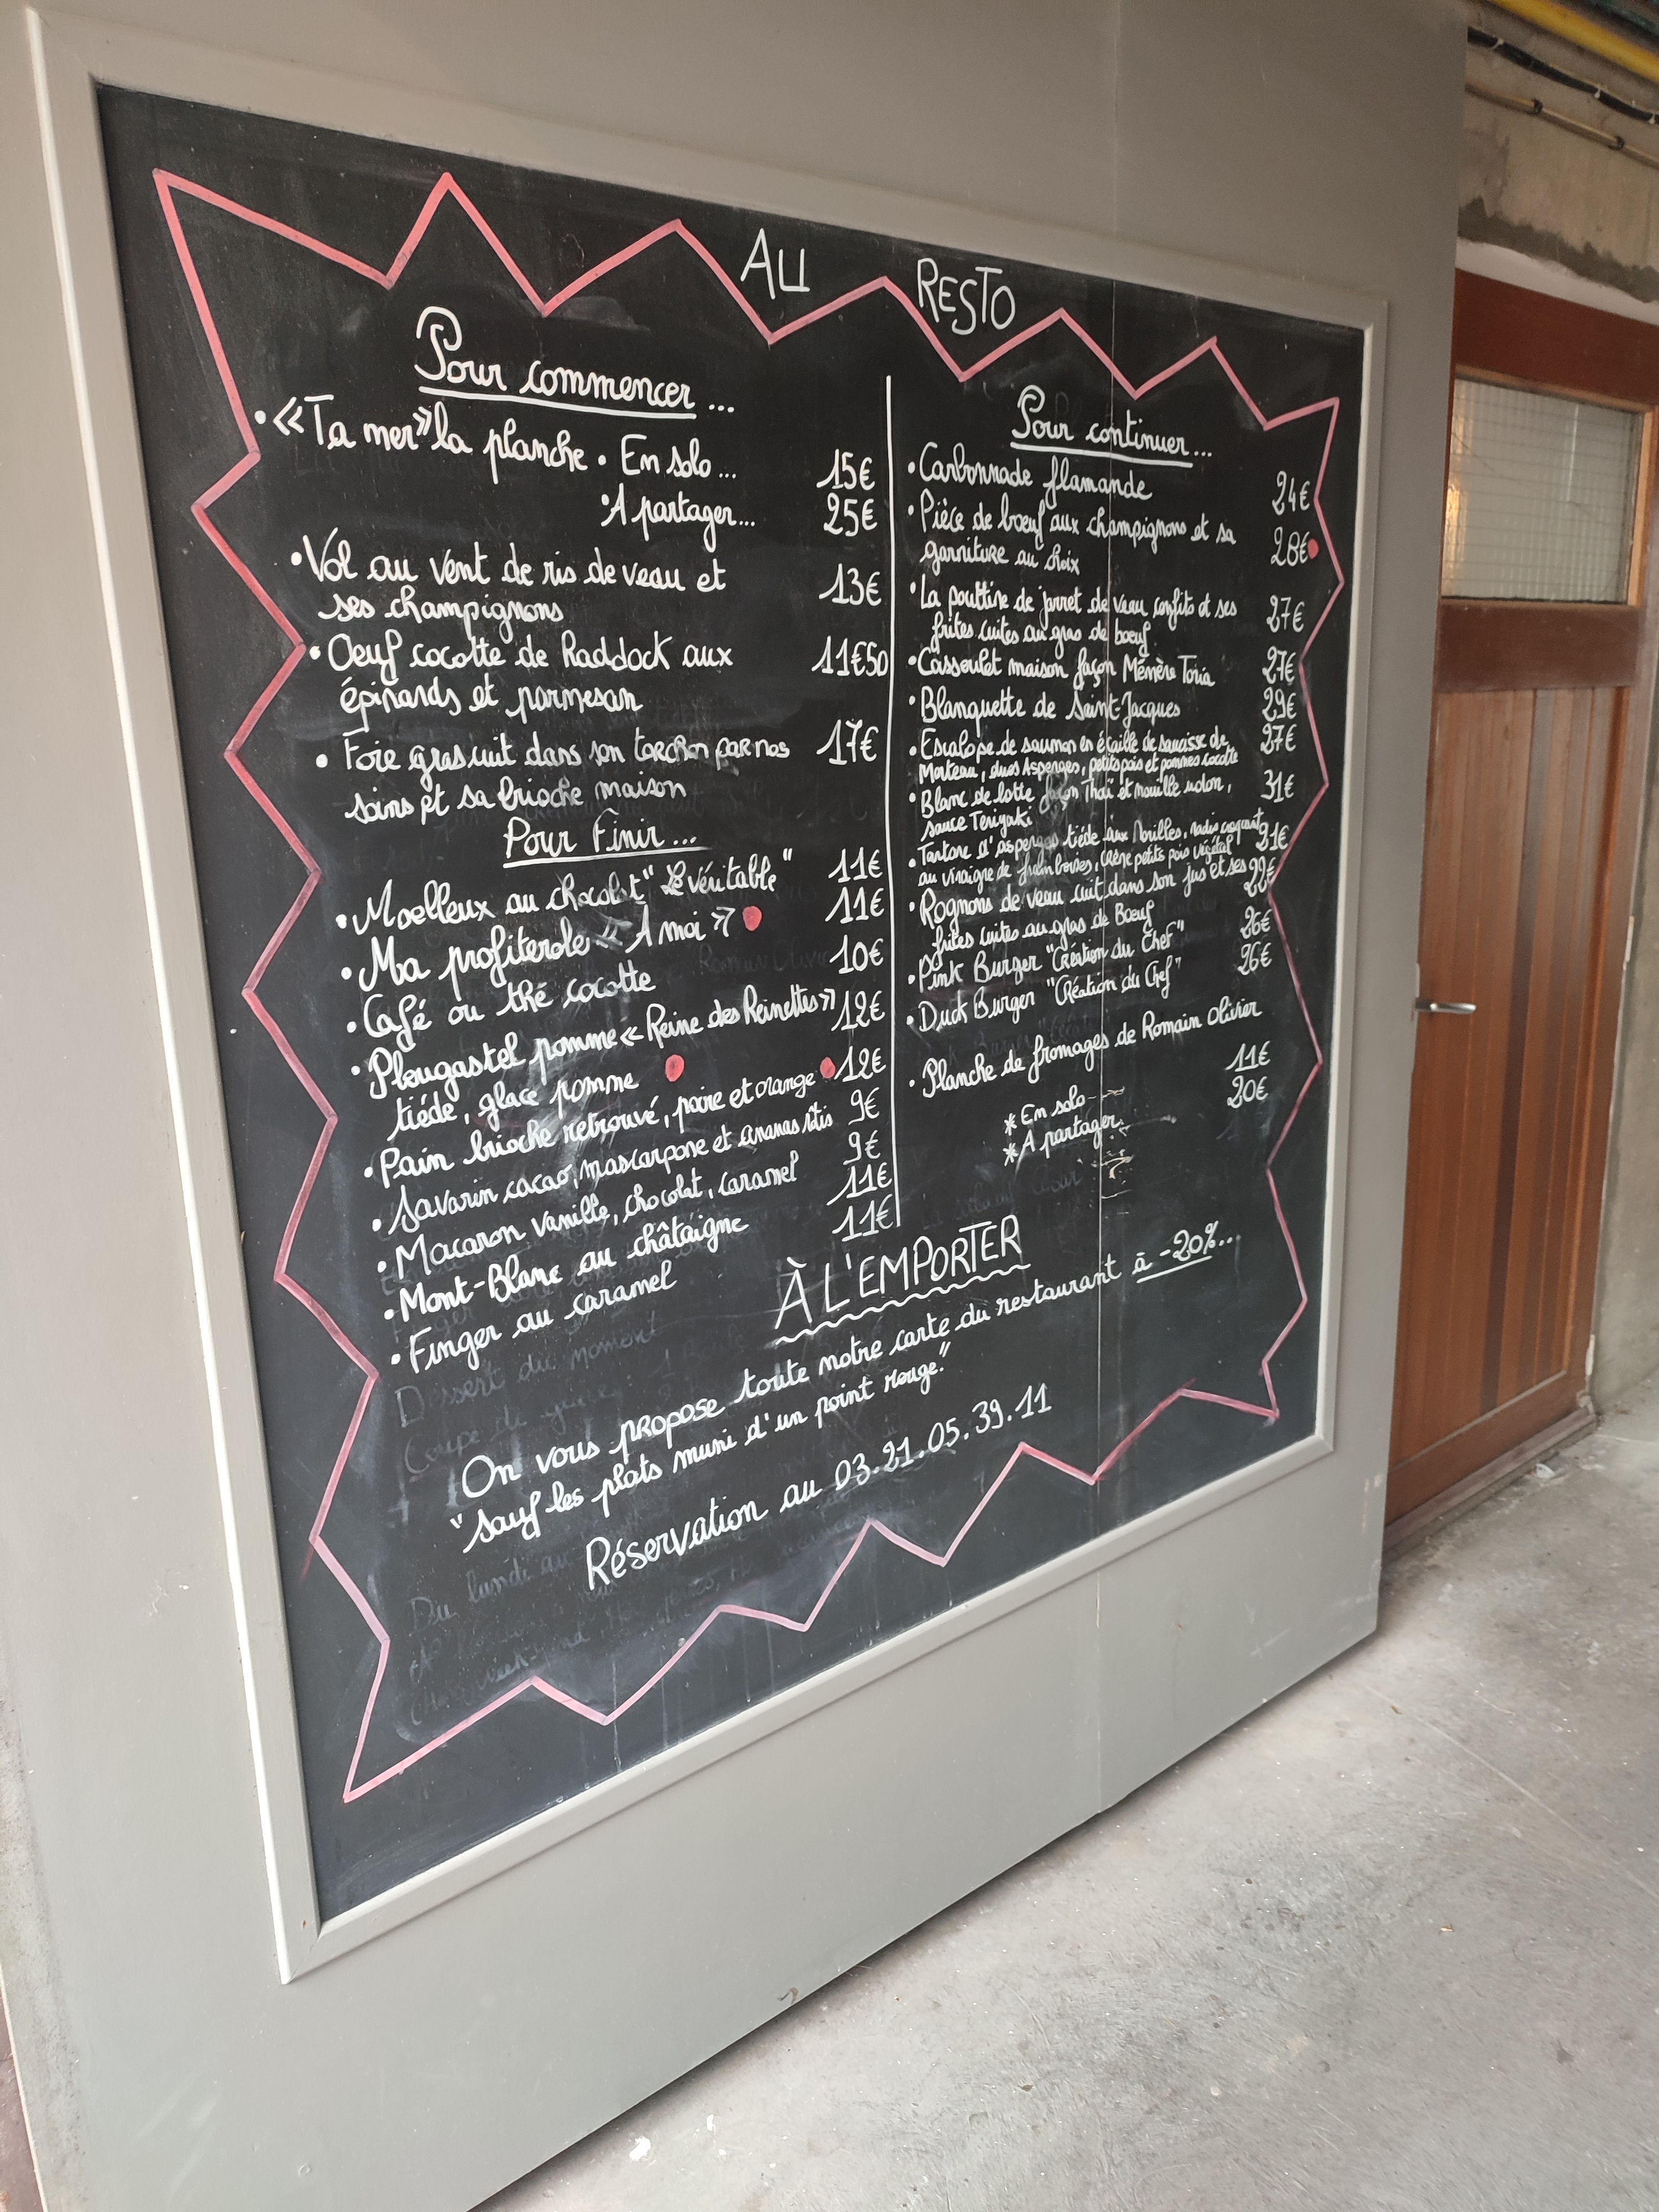 AU RESTO
Pour commencer...
• «Ta mer» la planche • En solo... 15€
• A partager... 25€
• Vol au vent de ris de veau et 13€
ses champignons
• Oeuf cocotte de Haddock aux 11€50
épinards et parmesan
• Foie gras cuit dans son torchon par nos 17€
soins et sa brioche maison
Pour Finir...
• Moelleux au chocolat "Le véritable" 11€
• Ma profiterole «À moi» 11€
• Café ou thé cocotte 10€
• Plougastel pomme «Reine des Reinettes» 12€
tiéde, glace pomme
• Pain brioche retrouvé, poire et orange 12€
• Savarin cacao, mascarpone et ananas rôtis 9€
• Macaron vanille, chocolat, caramel 9€
• Mont-Blanc au châtaigne 11€
• Finger au caramel 11€
Pour continuer...
• Carbonnade flamande 24€
• Pièce de boeuf aux champignons et sa 28€
garniture au choix
• La pouttine de jarret de veau confits et ses 27€
frites cuites au gras de boeuf
• Cassoulet maison façon Mémère Toria 27€
• Blanquette de Saint-Jacques 29€
• Escalope de saumon en écaille de saucisse de 27€
Morteau, duos Asperges, petits pois et pommes cocotte
• Blanc de lotte façon Thaï et nouille udon, 31€
sauce Teriyaki
• Tartare d'asperges tiéde aux Morilles, radis croquant 21€
au vinaigre de framboises, crème petits pois végétal
• Rognons de veau cuit dans son jus et ses 29€
frites cuites au gras de Boeuf
• Pink Burger "Création du Chef" 26€
• Duck Burger "Création du Chef" 26€
• Planche de fromages de Romain Olivier
* En solo- 11€
* A partager. 20€
À L'EMPORTER
On vous propose toute notre carte du restaurant à -20%...
"sauf les plats muni d'un point rouge."
Réservation au 03.21.05.39.11